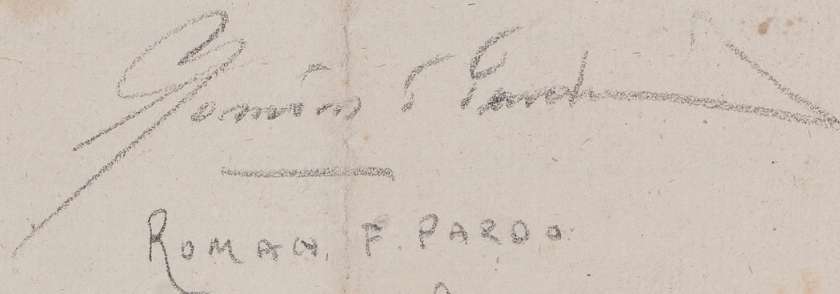 Román F Pardo
ROMAN. F. PARDO